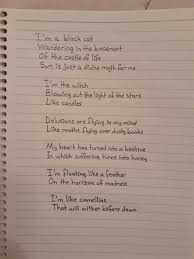 I'm a black cat
Wandering in the basement
Of the castle of life
Sun is just a divine myth for me
I'm the witch
Blowing out the light of the stars
Like candles
Delusions are flying in my mind
Like moths flying over dusty books
My heart has turned into a beehive
In which suffering turns into honey
I'm floating like a feather
On the horizon of madness
I'm like camellias
That will wither before dawn